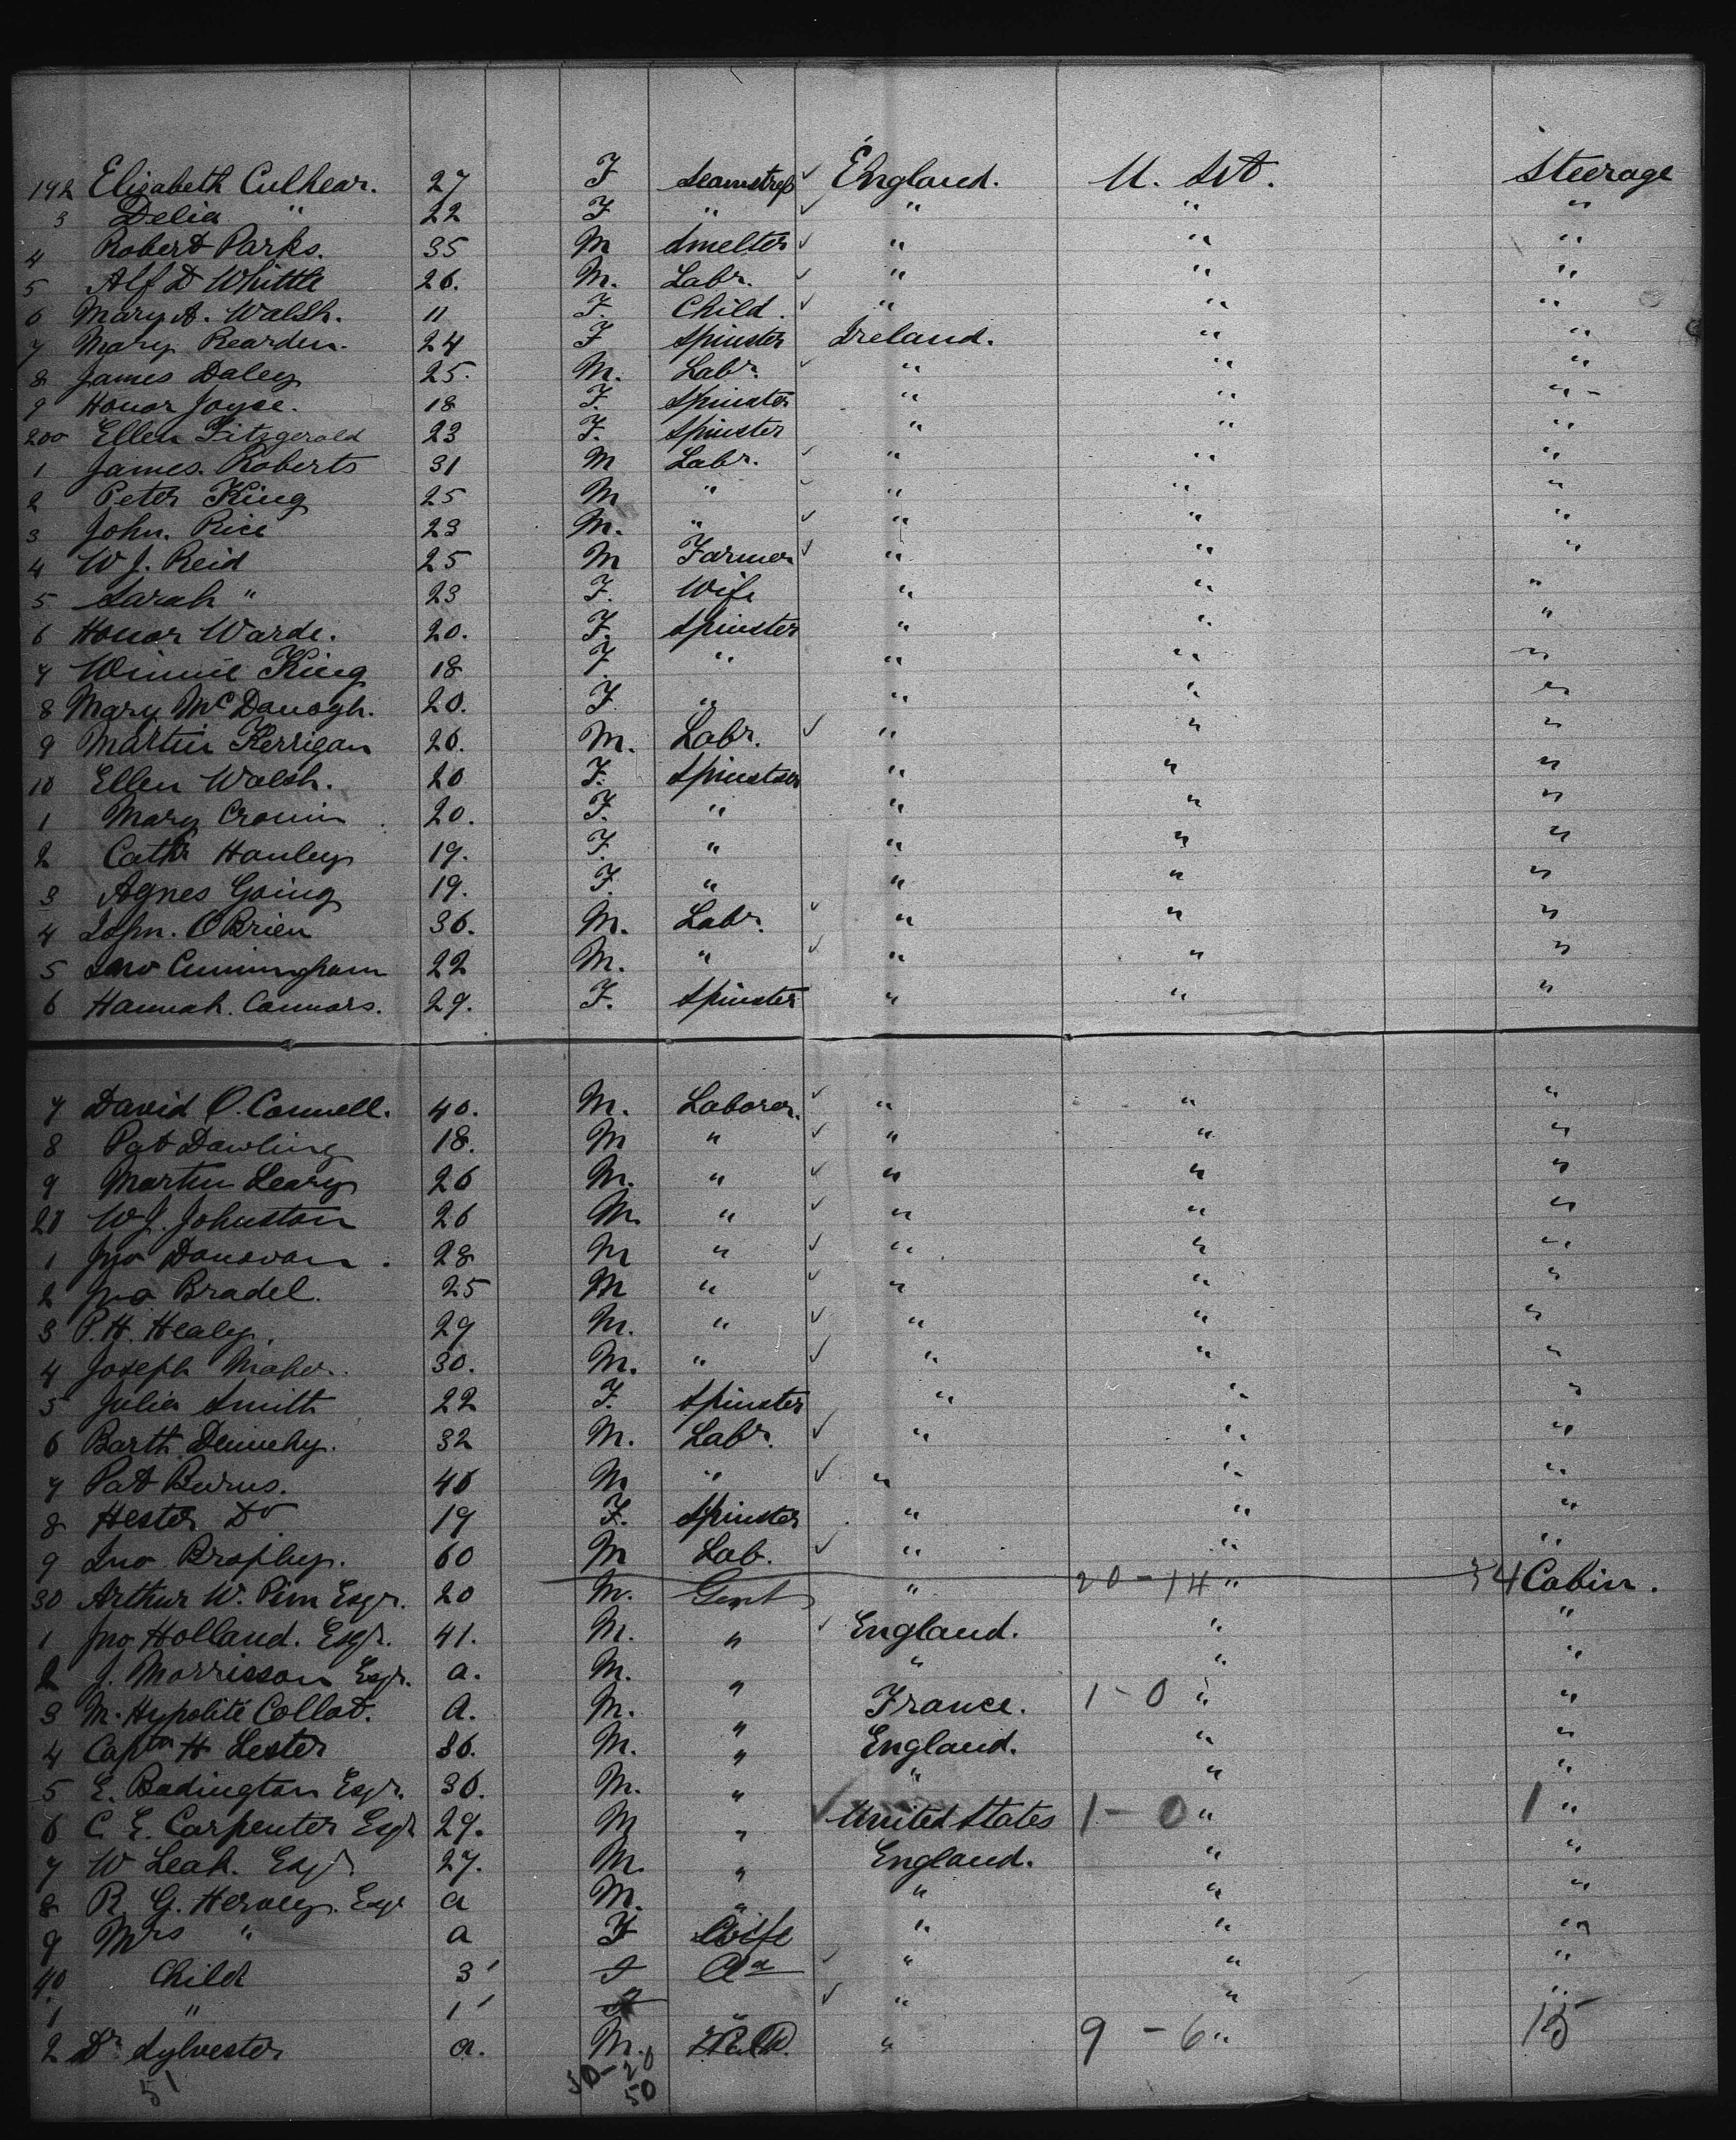 192 Elizabeth Culhear. 27 F Seamstress ✓ England. U. St. Steerage
3 Delia " 22 F " ✓ " " "
4 Robert Parks. 35 M Smelter ✓ " " "
5 Alf D Whittle 26. M. Labr. ✓ " " "
6 Mary A. Walsh. 11 F. Child. ✓ " " "
7 Mary Rearden. 24 F Spinster Ireland. " "
8 James Daley 25. M. Labr. ✓ " " "
9 Honor Joyce. 18 F. Spinster " " "
200 Ellen Fitzgerald 23 F. Spinster " " "
1 James. Roberts 31 M Labr. ✓ " " "
2 Peter King 25 M " ✓ " " "
3 John. Rice 23 M. " ✓ " " "
4 W J. Reid 25 M Farmer ✓ " " "
5 Sarah " 23 F. Wife " " "
6 Honor Warde. 20. F. Spinster " " "
7 Winnie King 18 F " " " "
8 Mary McDonogh. 20. F. " " " "
9 Martin Kerrigan 26. M. Labr. ✓ " " "
10 Ellen Walsh. 20 F. Spinster " " "
1 Mary Cronin 20. F. " " " "
2 Cathr Hanley 19. F. " " " "
3 Agnes Going 19. F. " " " "
4 O'Brien 36. M. Labr. ✓ " " "
5 Jno Cunningham 22 M. " ✓ " " "
6 Hannah. Connors. 29. F. Spinster " " "
7 David O. Connell. 40. M. Laborer. ✓ " " "
8 Pat Dowling 18. M " ✓ " " "
9 Martin Leary 26 M. " ✓ " " "
20 W J. Johnston 26 M. " ✓ " " "
1 Jno Donovan. 28 M " ✓ " " "
2 Jno Bradel. 25 M " ✓ " " "
3 P. H. Healy. 29 M. " ✓ " " "
4 Joseph Maher. 30. M. " ✓ " " "
5 Julia Smith 22 F. Spinster " " "
6 Barth Dennehy. 32 M. Labr. ✓ " " "
7 Pat Burns. 46 M " ✓ " " "
8 Hester Do 19 F. Spinster " " "
9 Jno Brophy. 60 M Lab. ✓ " " "
30 Arthur W. Pim Esqr. 20 M. Gent " 20-14 " 34 Cabin.
1 Jno Holland. Esqr. 41. M. " ✓ England. " "
2 J. Morrisson Esqr. a. M. " " " "
3 M. Hypolite Collot. a. M. " France. 1-0 " "
4 Captn H Lester 36. M. " England. " "
5 E. Badington Esqr. 30. M. " " " "
6 C. E. Carpenter Esqr 29. M " ✓ United States 1-0 " 1 "
7 W Leah. Esqr 27. M. " England. " "
8 R. G. Hervey. Esqr a M. " " " "
9 Mrs " a F Wife " " "
40 Child 3' ✓ " " "
1 " 1' " ✓ " " "
2 Dr Sylvester a. M. " 9-6 " 15
51 50-20
50